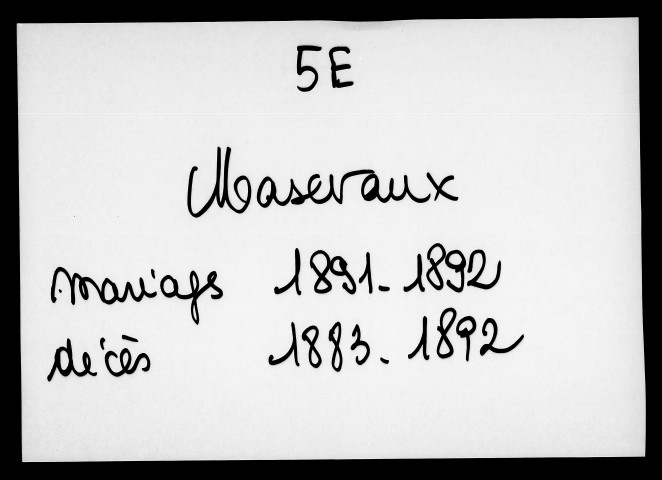 5E
Masevaux
mariages 1891-1892
décès 1883-1892